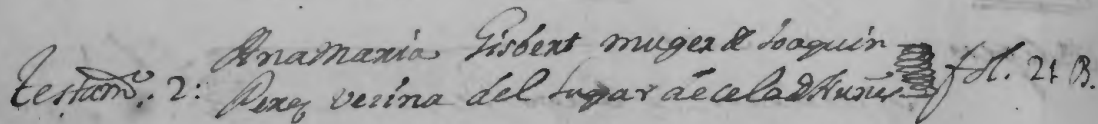 Testamto. 2: Anamaria Gisbert muger de Joaquin
Perez vecina del Lugar de cela de Nuñes fol. 21 B.